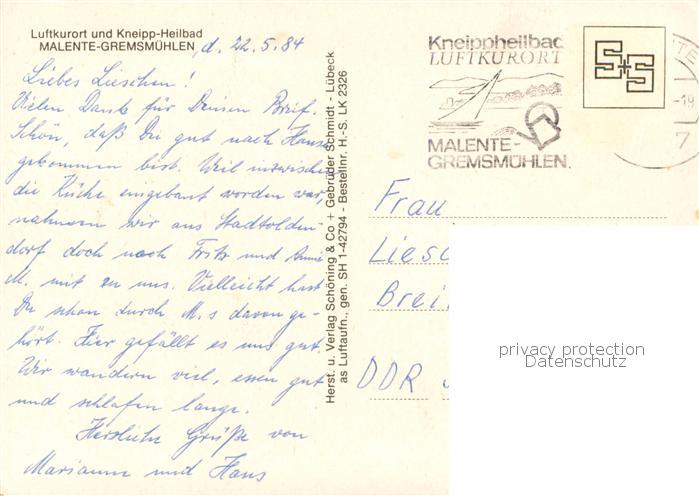 Luftkurort und Kneipp-Heilbad
MALENTE-GREMSMÜHLEN, d. 22.5.84
Liebes Lieschen!
Vielen Dank für Deinen Brief.
Schön, daß Du gut nach Hause
gekommen bist. Weil inzwischen
die Küche eingebaut worden war,
nahmen wir aus Stadtolden
dorf doch noch Fritz und Anne
M. mit zu uns. Vielleicht hast
Du schon durch M.s davon ge-
hört. Hier gefällt es uns gut.
Wir wandern viel, essen gut
und schlafen lange.
Herzliche Grüße von
Marianne und Hans
Herst. u. Verlag Schöning & Co + Gebrüder Schmidt - Lübeck
als Luftaufn., gen. SH 1-42794 - Bestellnr. H.-S. LK 2326
Kneippheilbad
LUFTKURORT
MALENTE-
GREMSMÜHLEN.
S+S
-19
7
Frau
Liesc
Brei
DDR
privacy protection
Datenschutz